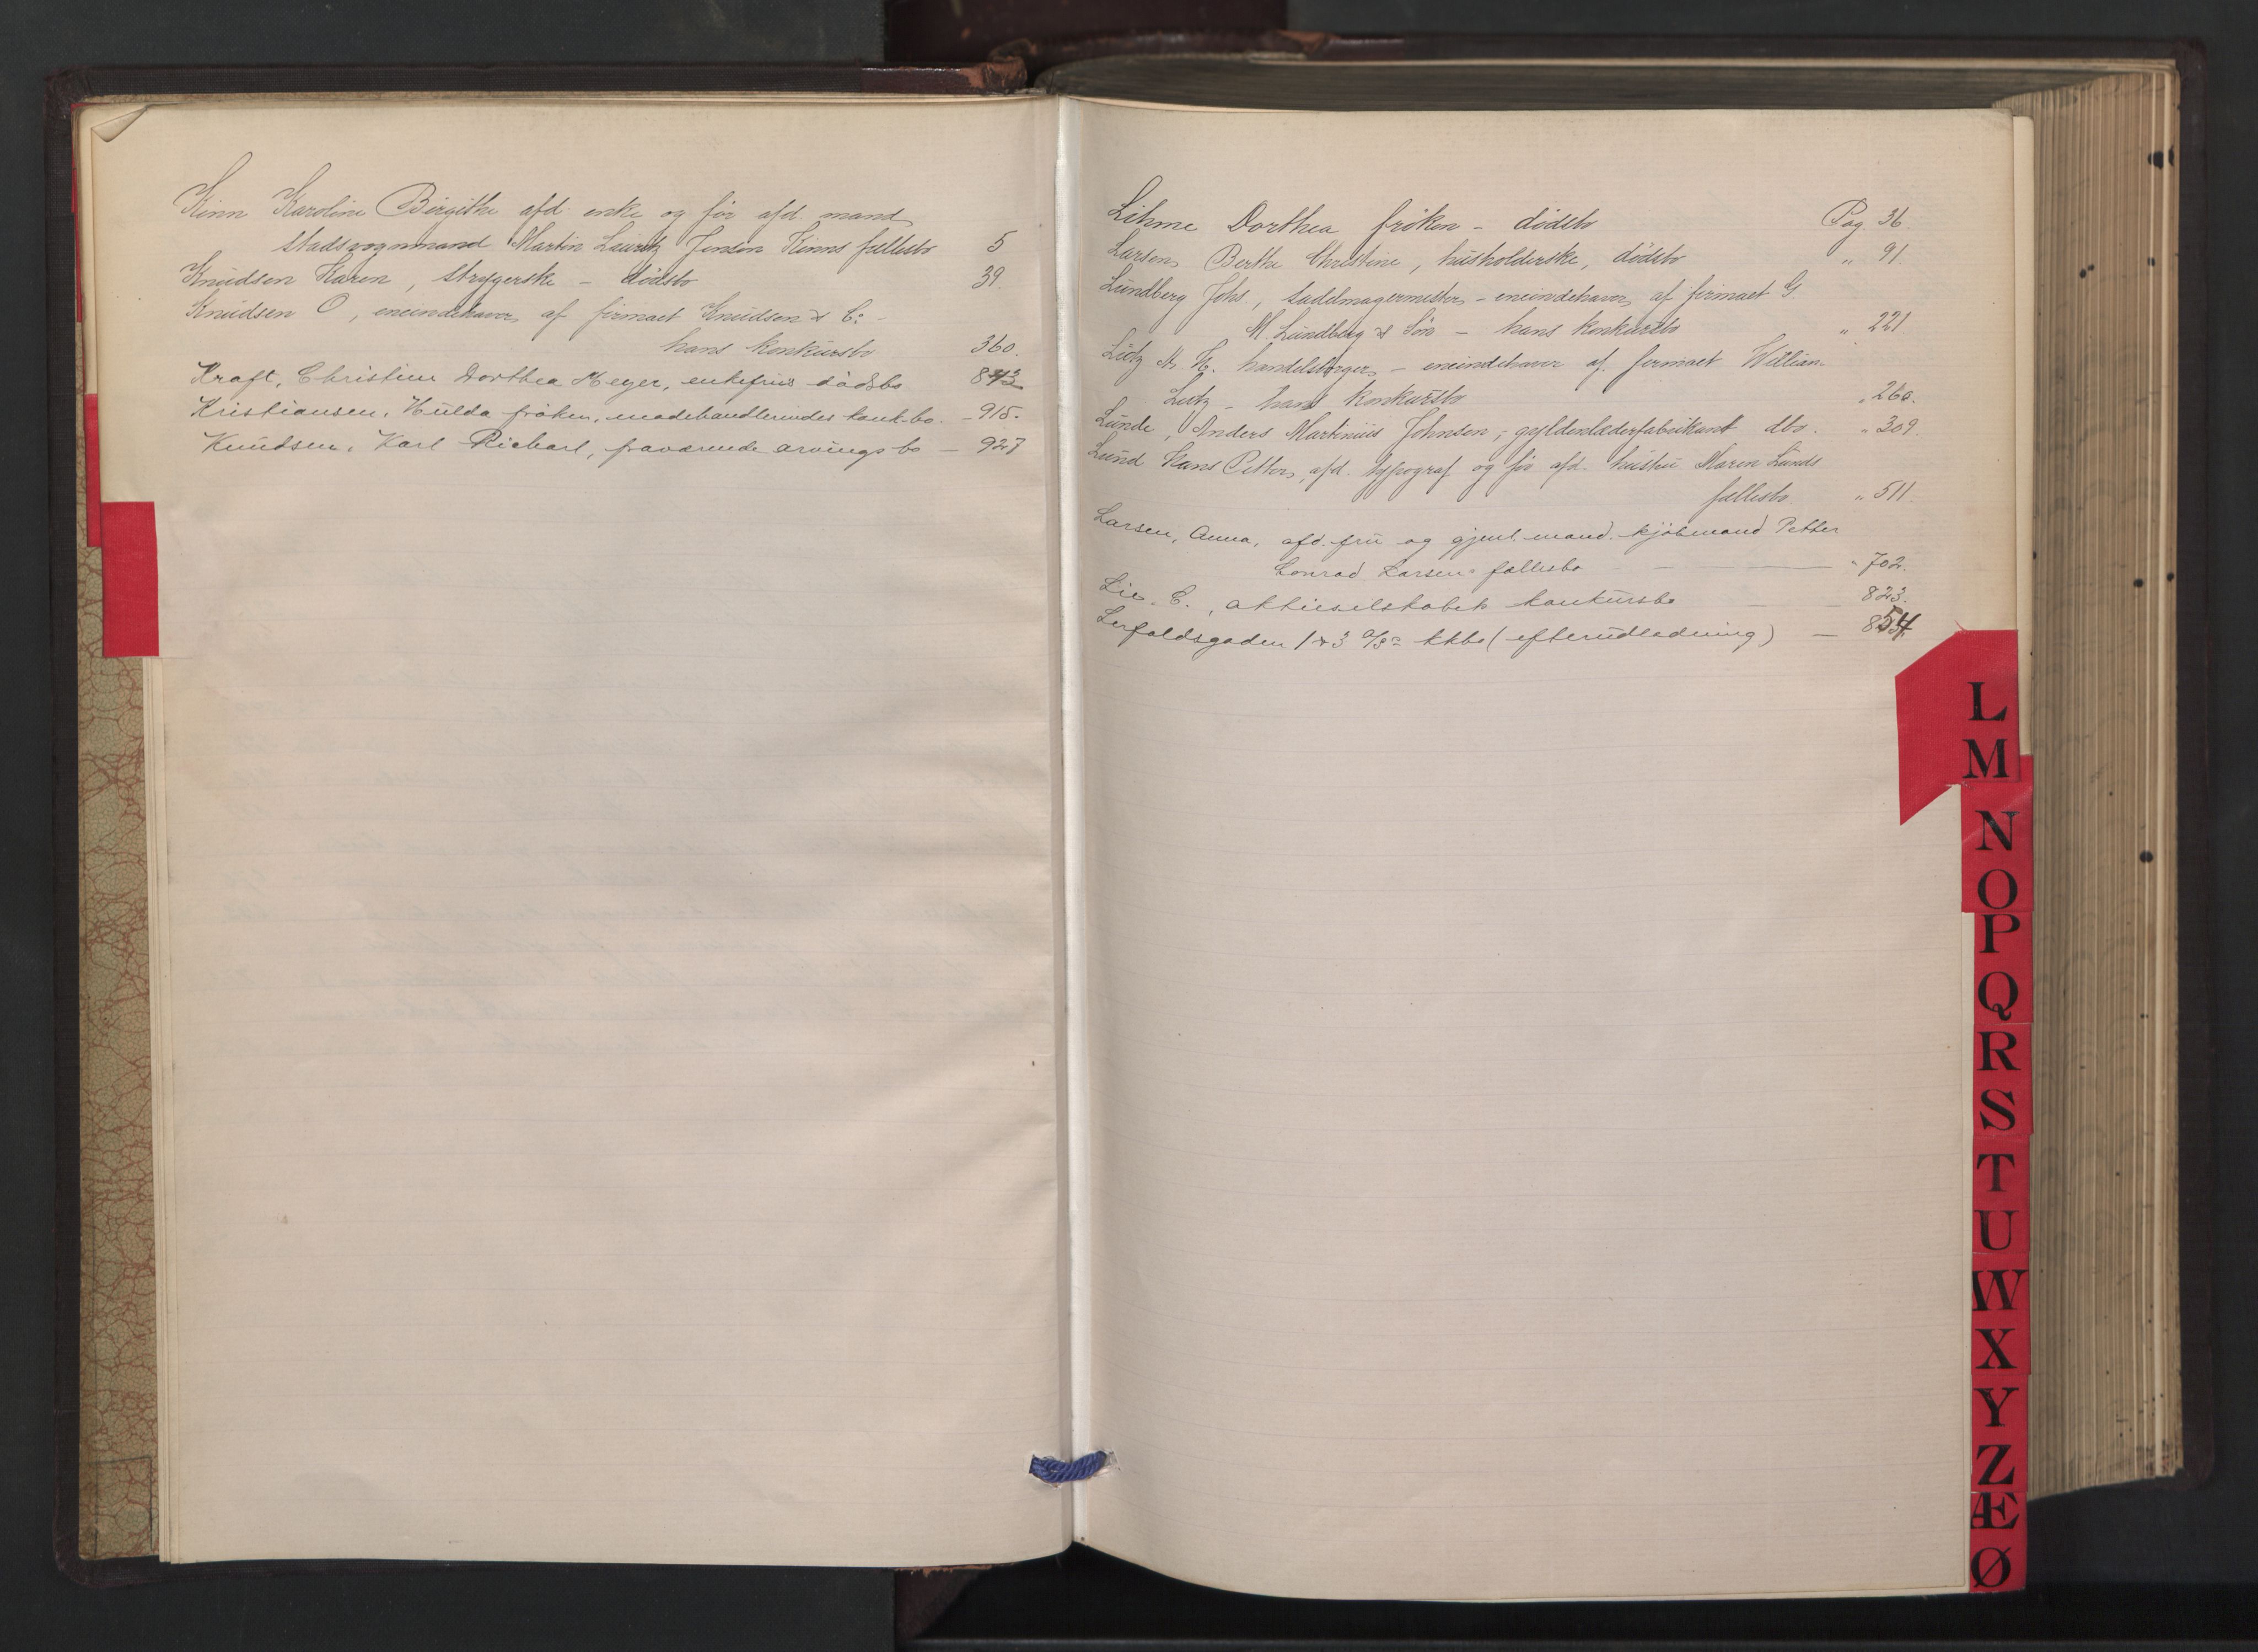 Kinn Karoline Birgithe afd. enke og før afd. mand
stadsvognmand Martin Lauritz Jensen Kinns fællesbo 5
Knudsen Karen, strygerske - dødsbo 39.
Knudsen O, eneindehaver af firmaet Knudsen & C:
hans konkursbo 360.
Kraft, Christine Dorthea Meyer, enkefrus dødsbo 843
Kristiansen, Hulda frøken, modehandlerindes konk.bo. - 915.
Knudsen, Karl Richart, fraværende arvings bo - 927
Lihme Dorthea frøken - dødsbo Pag 36.
Larsen Berthe Christine, husholderske, dødsbo " 91.
Lundberg Johs, sadelmagermester - eneindehaver af firmaet G.
M. Lundberg & Søn - hans konkursbo " 221
Lutz M. handelsborger - eneindehaver af firmaet William
Lutz - hans konkursbo " 260.
Lunde, Anders Martinius Johnsen, gyldenlæderfabrikant dbo. " 309.
Lund Hans Petter, afd. typograf og før afd. hustru Maren Lunds
fællesbo " 511.
Larsen, Anna, afd. fru og gjenl. mand kjøbmand Petter
Conrad Larsens fællesbo - " 702.
Lie, C., aktieselskabets konkursbo - 823.
Lerfaldsgaden 1 & 3 A/S: kkbo (efterudlodning) - 854
L
M
N
O
P
Q
R
S
T
U
W
X
Y
Z
Æ
Ø